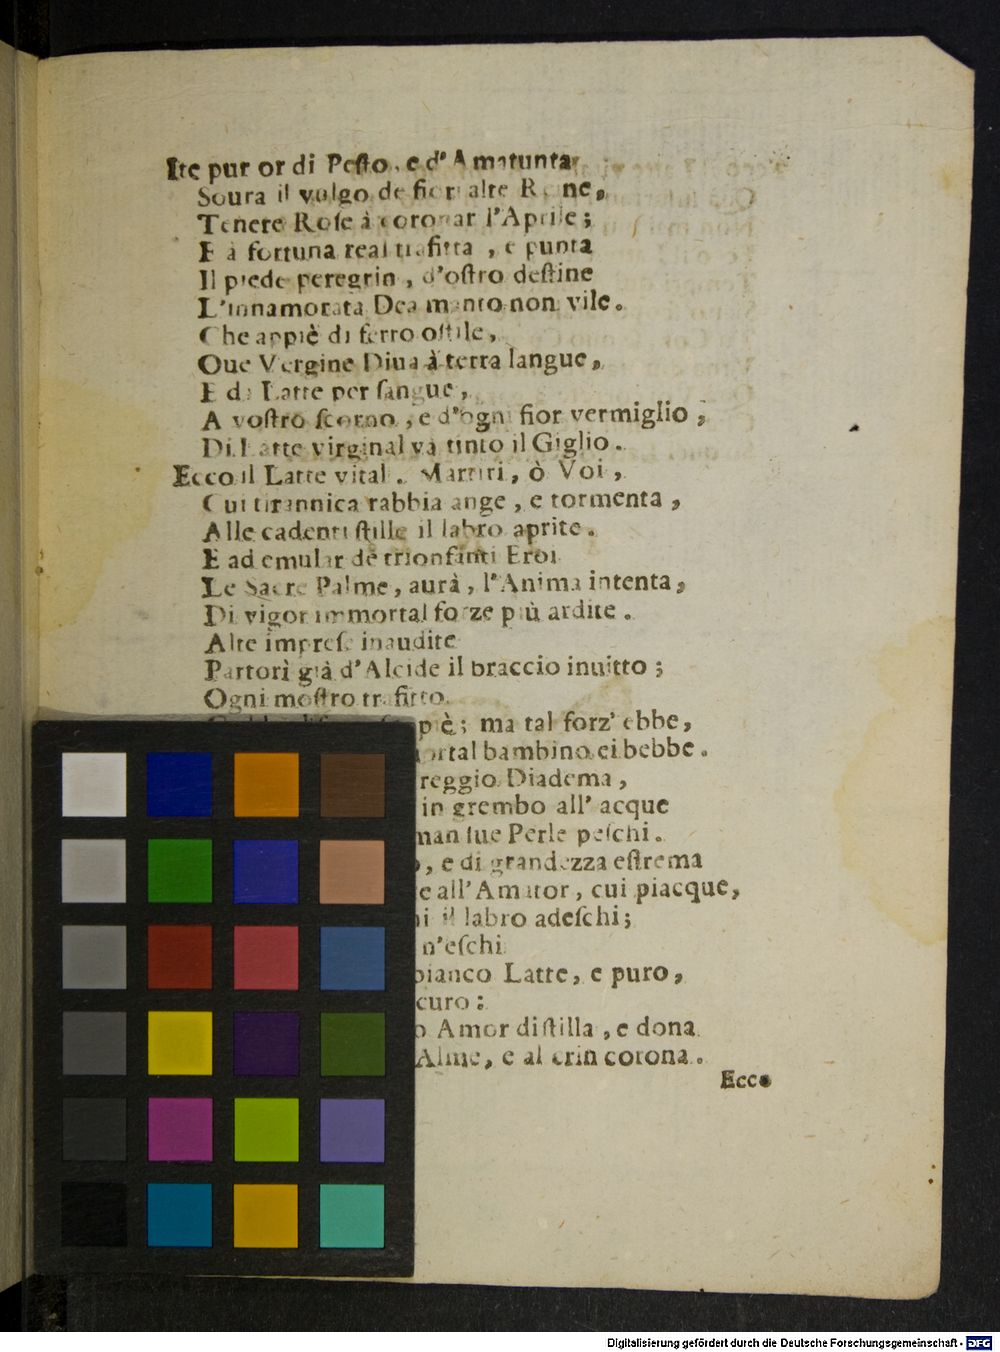 Ite pur or di Pesto, e d'Amatunta
Soura il vulgo de fiori alte Reine,
Tenere Rose à coronar l'Aprile;
E à fortuna real trafitta, e punta
Il piede peregrin, d'ostro destine
L'innamorata Dea manto non vile.
Che appiè di ferro ostile,
Oue Vergine Diua à terra langue,
E dà Latte per sangue,
A vostro scorno, e d'ogni fior vermiglio,
Di Latte virginal va tinto il Giglio.
Ecco il Latte vital. Martiri, ò Voi,
Cui tirannica rabbia ange, e tormenta,
Alle cadenti stille il labro aprite.
E ad emular de trionfanti Eroi
Le Sacre Palme, aurà, l'Anima intenta,
Di vigor immortal forze più ardite.
Alte imprese inaudite
Partorì già d'Alcide il braccio inuitto;
Ogni mostro trafitto
piè; ma tal forz' ebbe,
bambino ei bebbe.
reggio Diadema,
in grembo all' acque
man sue Perle peschi.
, e di grandezza estrema
all'Amator, cui piacque,
il labro adeschi;
n'eschi
bianco Latte, e puro,
curo:
Amor distilla, e dona
Alme, e al crin corona.
Ecco
Digitalisierung gefördert durch die Deutsche Forschungsgemeinschaft - DFG